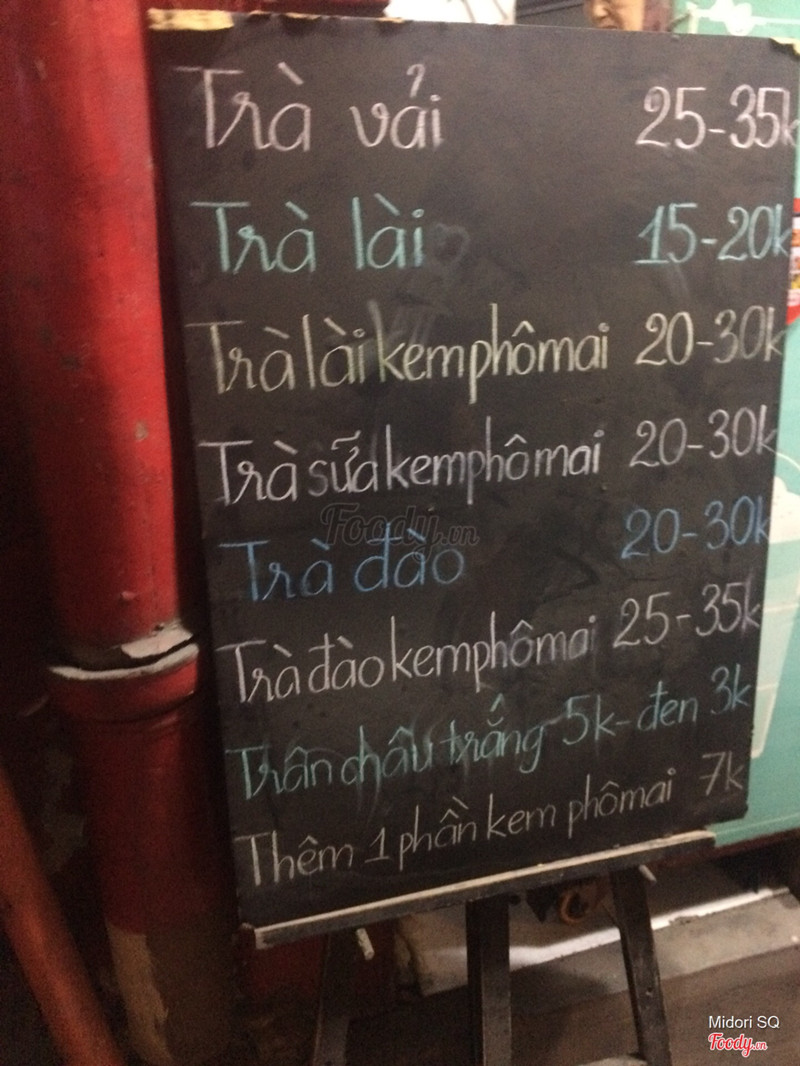 Trà vải 25-35k
Trà lài 15-20k
Trà lài kem phômai 20-30k
Trà sữa kem phômai 20-30k
Foody.vn
Trà đào 20-30k
Trà đào kem phômai 25-35k
Trân châu trắng 5k-đen 3k
Thêm 1 phần kem phômai 7k
Midori SQ
Foody.vn